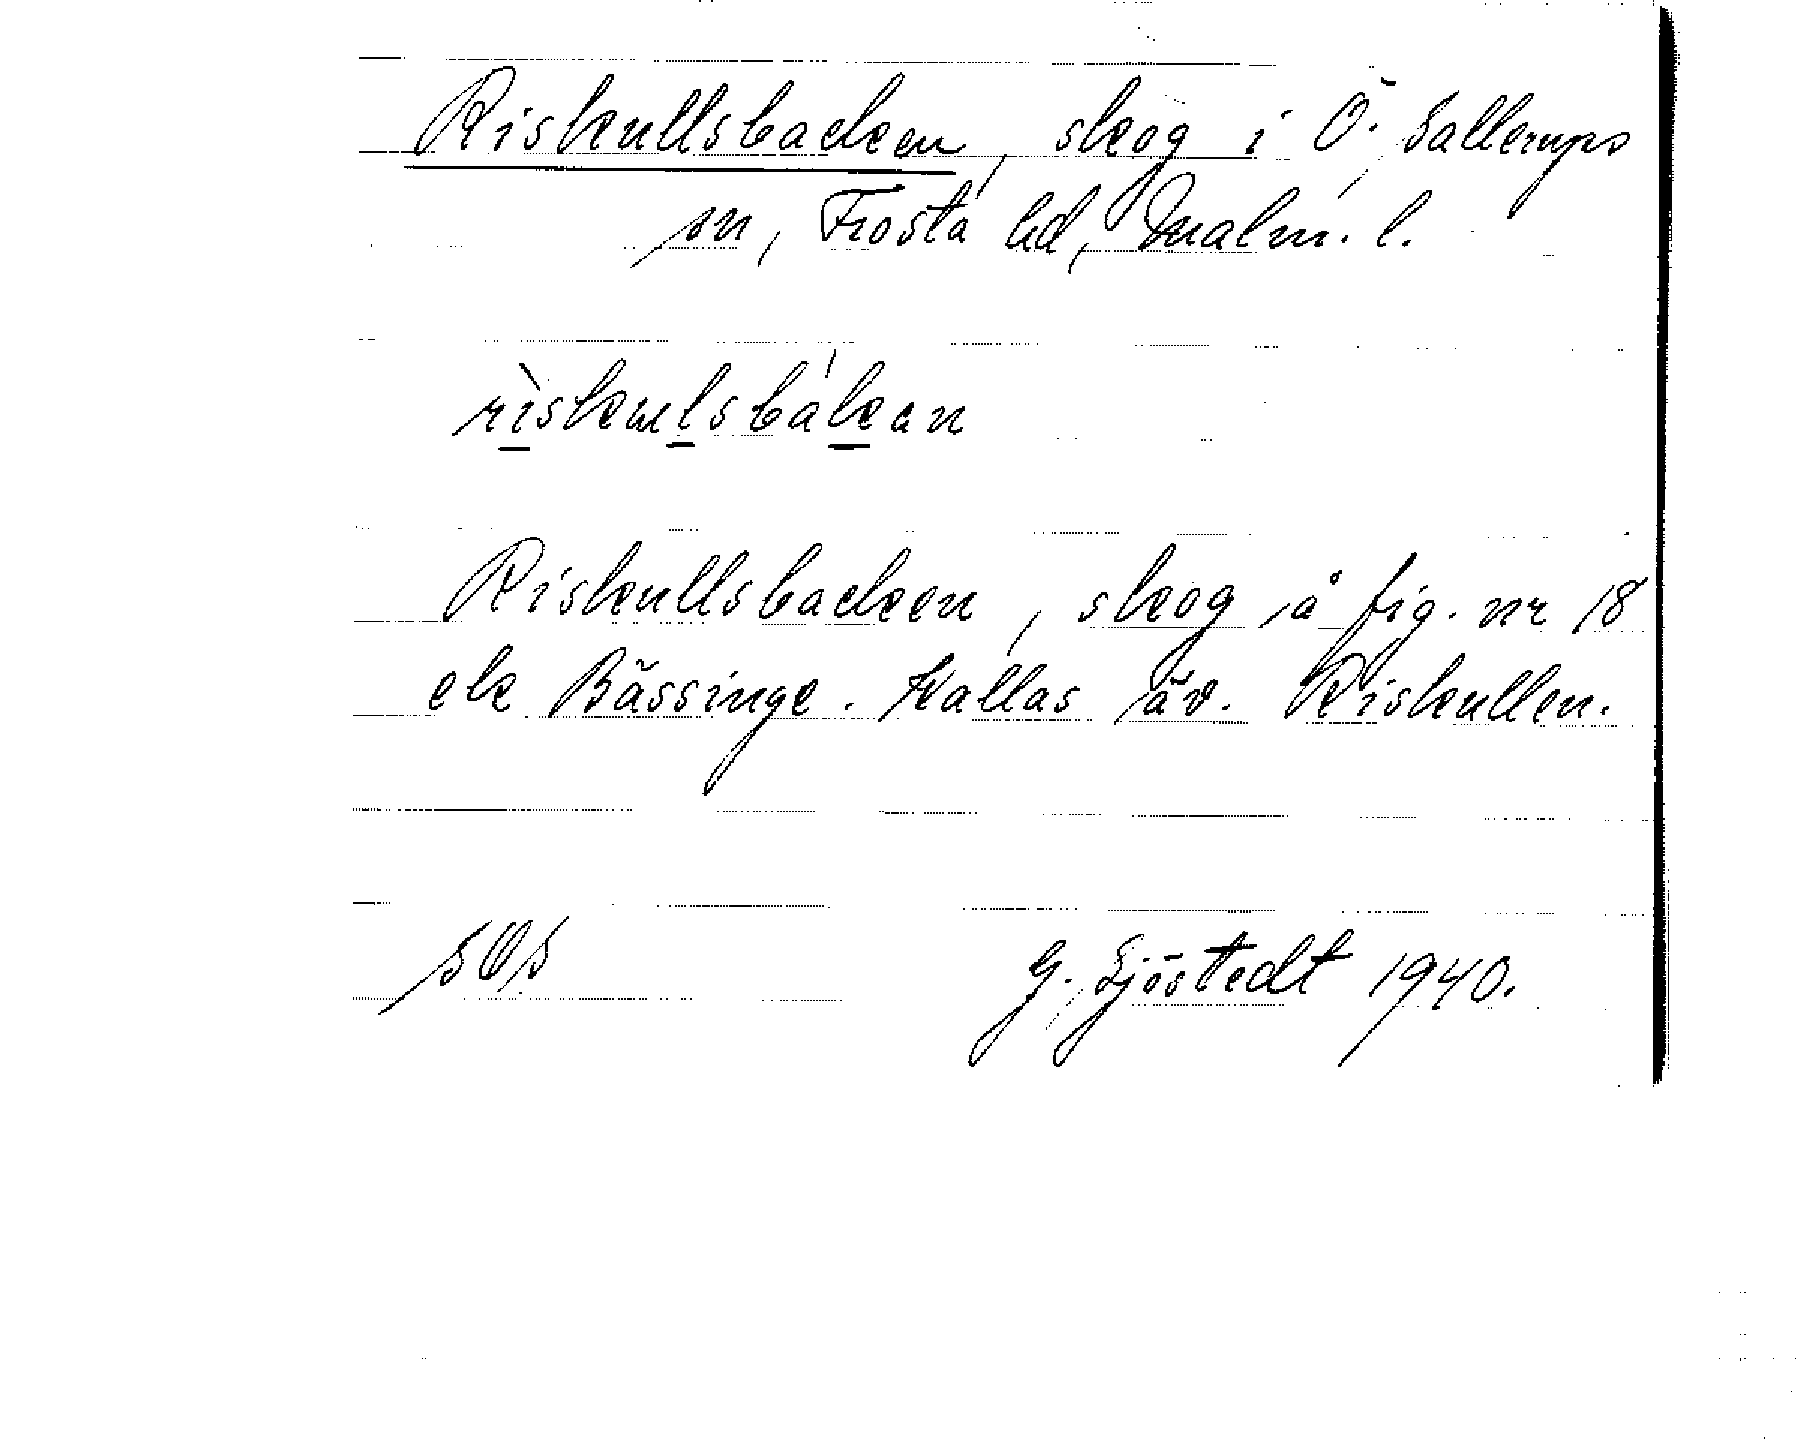 Riskullsbacken, skog i Ö. Sallerups
sn, Frosta hd, Malm. l.
rìskulsbákan
Riskullsbacken, skog å fig. nr 18
ek Bässinge. Kallas äv. Riskullen.
SOS
G. Sjöstedt 1940.